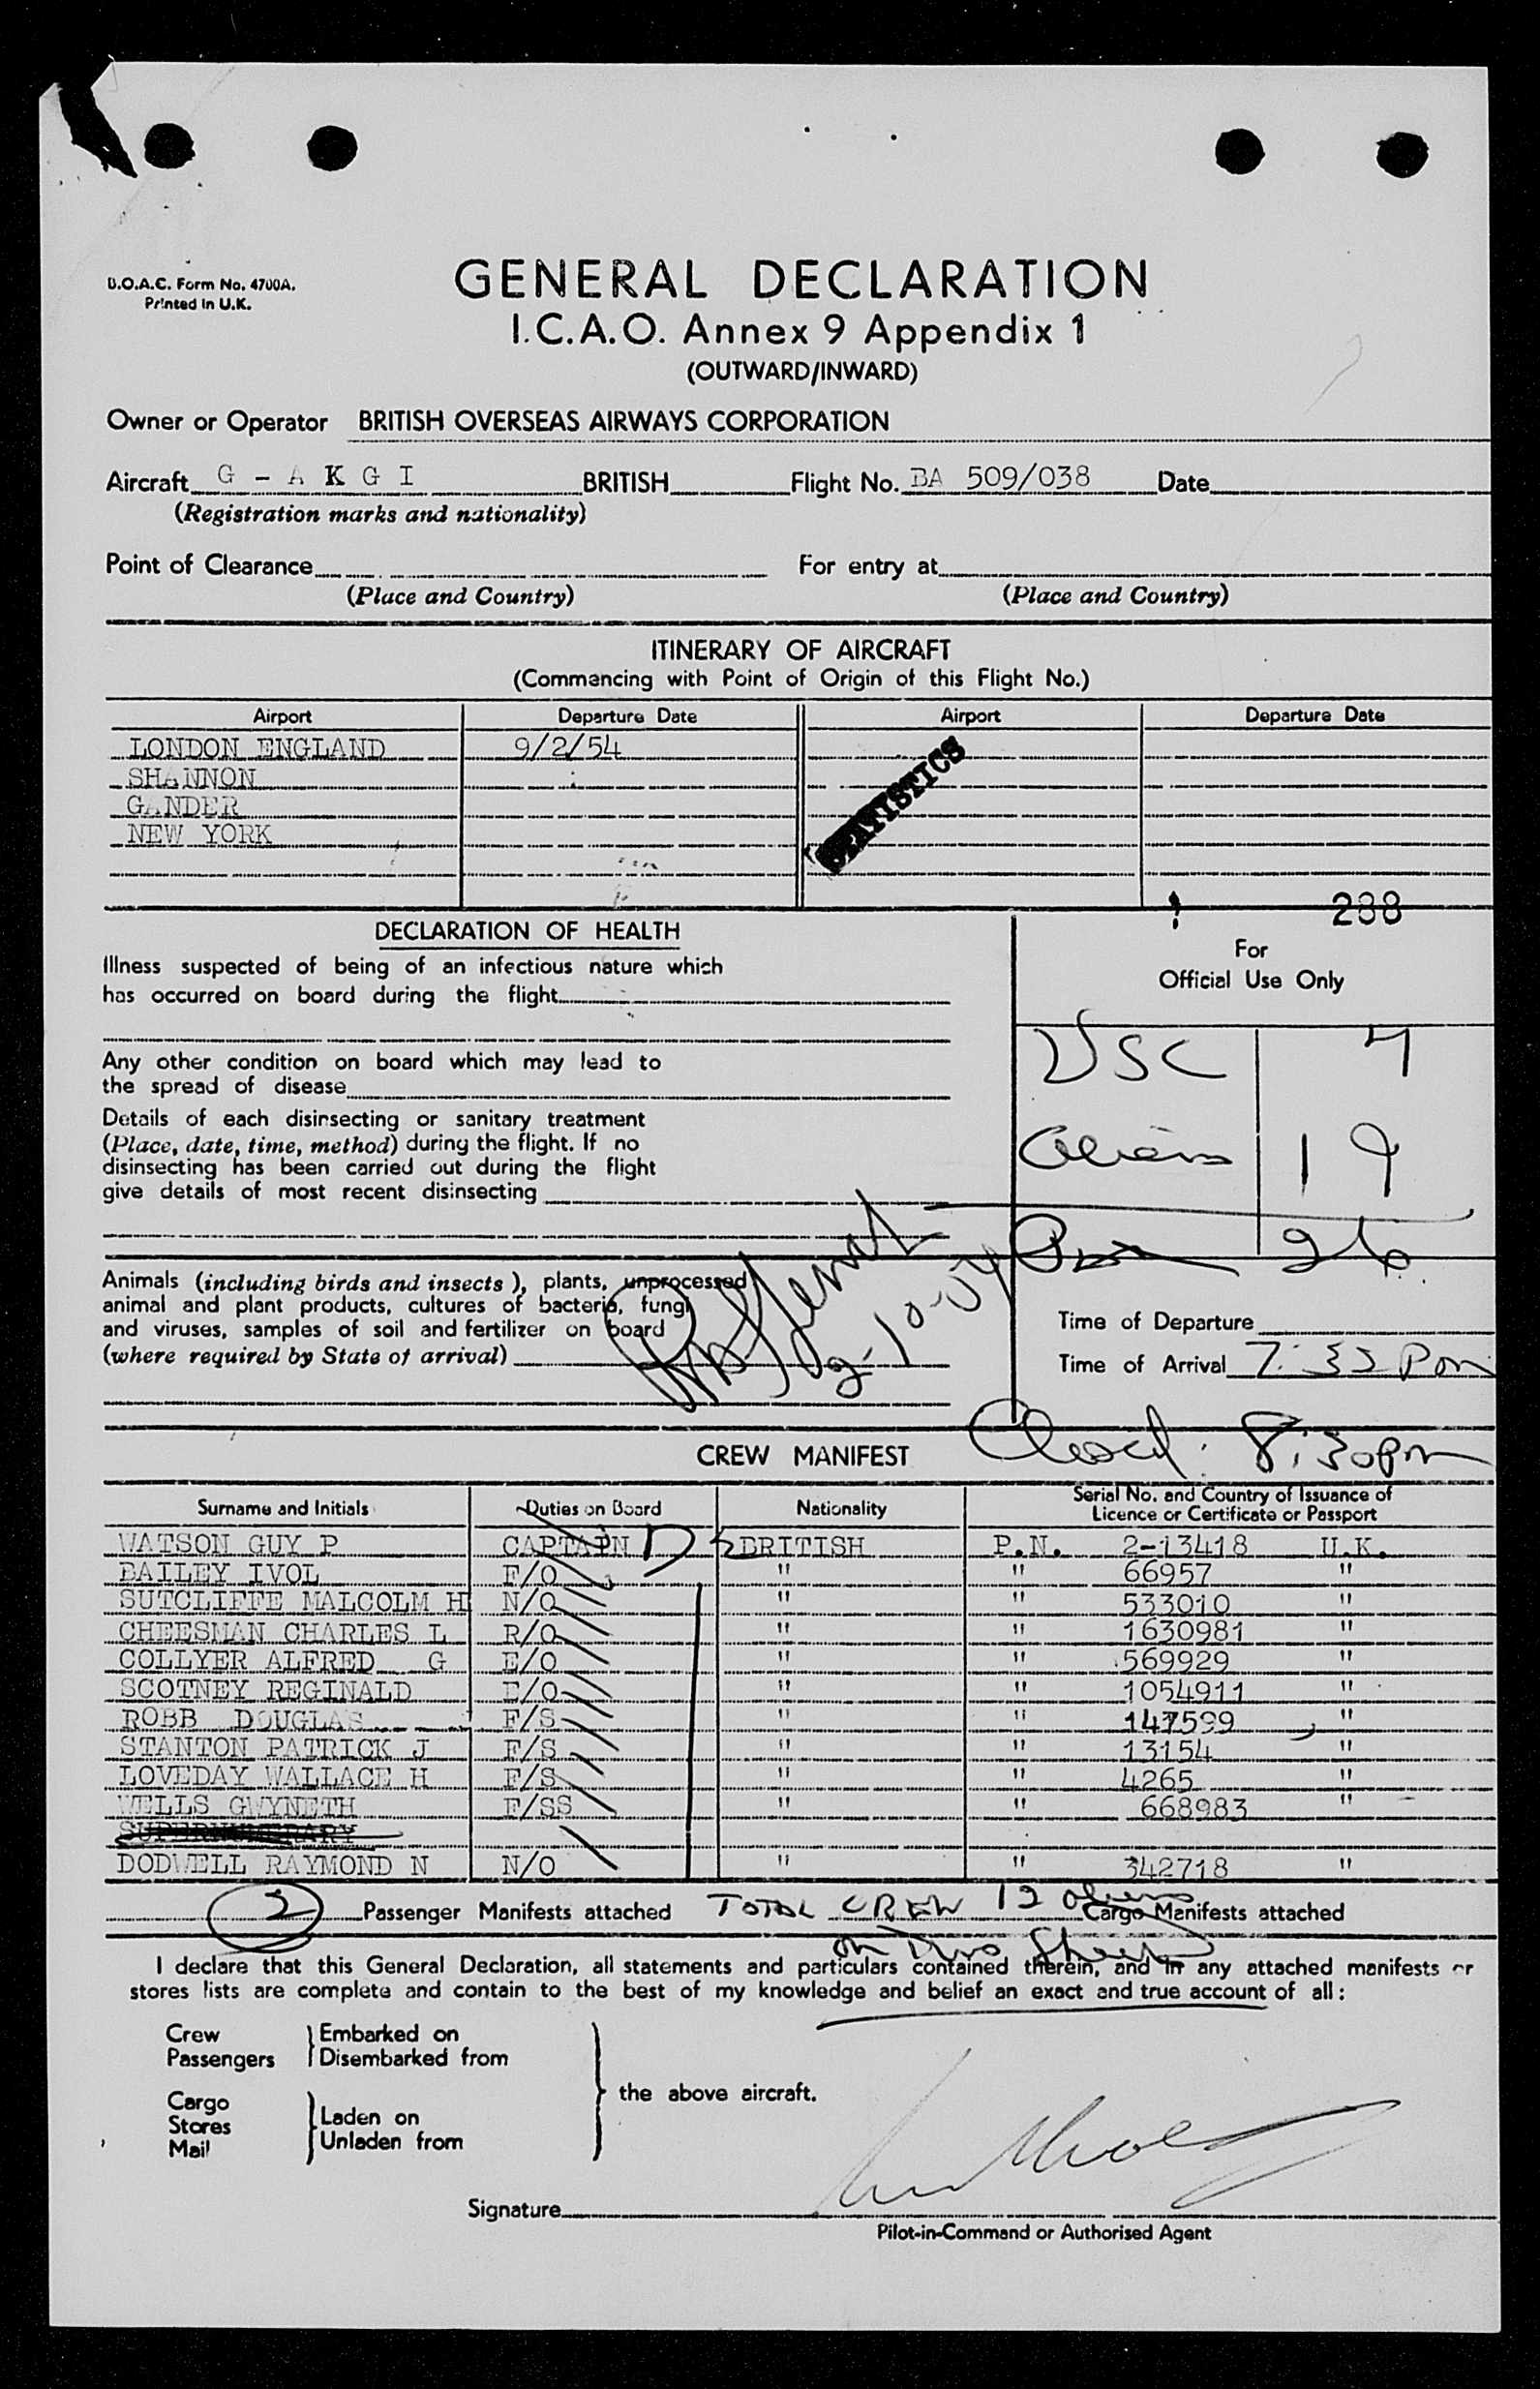 B.O.A.C. Form No. 4700A.
Printed in U.K.
GENERAL DECLARATION
I.C.A.O. Annex 9 Appendix 1
(OUTWARD/INWARD)
Owner or Operator BRITISH OVERSEAS AIRWAYS CORPORATION
Aircraft G - A K G I BRITISH Flight No. BA 509/038 Date
(Registration marks and nationality)
Point of Clearance For entry at
(Place and Country) (Place and Country)
ITINERARY OF AIRCRAFT
(Commencing with Point of Origin of this Flight No.)
Airport Departure Date Airport Departure Date
LONDON ENGLAND 9/2/54
SHANNON
GANDER
NEW YORK
STATISTICS
288
DECLARATION OF HEALTH
For
Official Use Only
Illness suspected of being of an infectious nature which
has occurred on board during the flight
Any other condition on board which may lead to
the spread of disease
USC 7
Details of each disinsecting or sanitary treatment
(Place, date, time, method) during the flight. If no
disinsecting has been carried out during the flight
give details of most recent disinsecting
Aliens 19
26
Animals (including birds and insects), plants, unprocessed
animal and plant products, cultures of bacteria, fungi
and viruses, samples of soil and fertilizer on board
(where required by State of arrival)
2-10-54
Time of Departure
Time of Arrival 7:35 Pm
8:30pm
CREW MANIFEST
Surname and Initials Duties on Board Nationality Serial No. and Country of Issuance of
Licence or Certificate or Passport
WATSON GUY P CAPTAIN D BRITISH P.N. 2-13418 U.K.
BAILEY IVOL F/O " " 66957 "
SUTCLIFFE MALCOLM H N/O " " 533010 "
CHEESMAN CHARLES L R/O " " 1630981 "
COLLYER ALFRED G E/O " " 569929 "
SCOTNEY REGINALD E/O " " 1054911 "
ROBB DOUGLAS F/S " " 147599 "
STANTON PATRICK J F/S " " 13154 "
LOVEDAY WALLACE H F/S " " 4265 "
WELLS GWYNETH F/SS " " 668983 "
SUPERNUMERARY
DODWELL RAYMOND N N/O " " 342718 "
2 Passenger Manifests attached TOTAL CREW 12 aliens Cargo Manifests attached
on this Sheet
I declare that this General Declaration, all statements and particulars contained therein, and in any attached manifests or
stores lists are complete and contain to the best of my knowledge and belief an exact and true account of all:
Crew Embarked on
Passengers Disembarked from
the above aircraft.
Cargo
Stores Laden on
Mail Unladen from
Signature
Pilot-in-Command or Authorised Agent